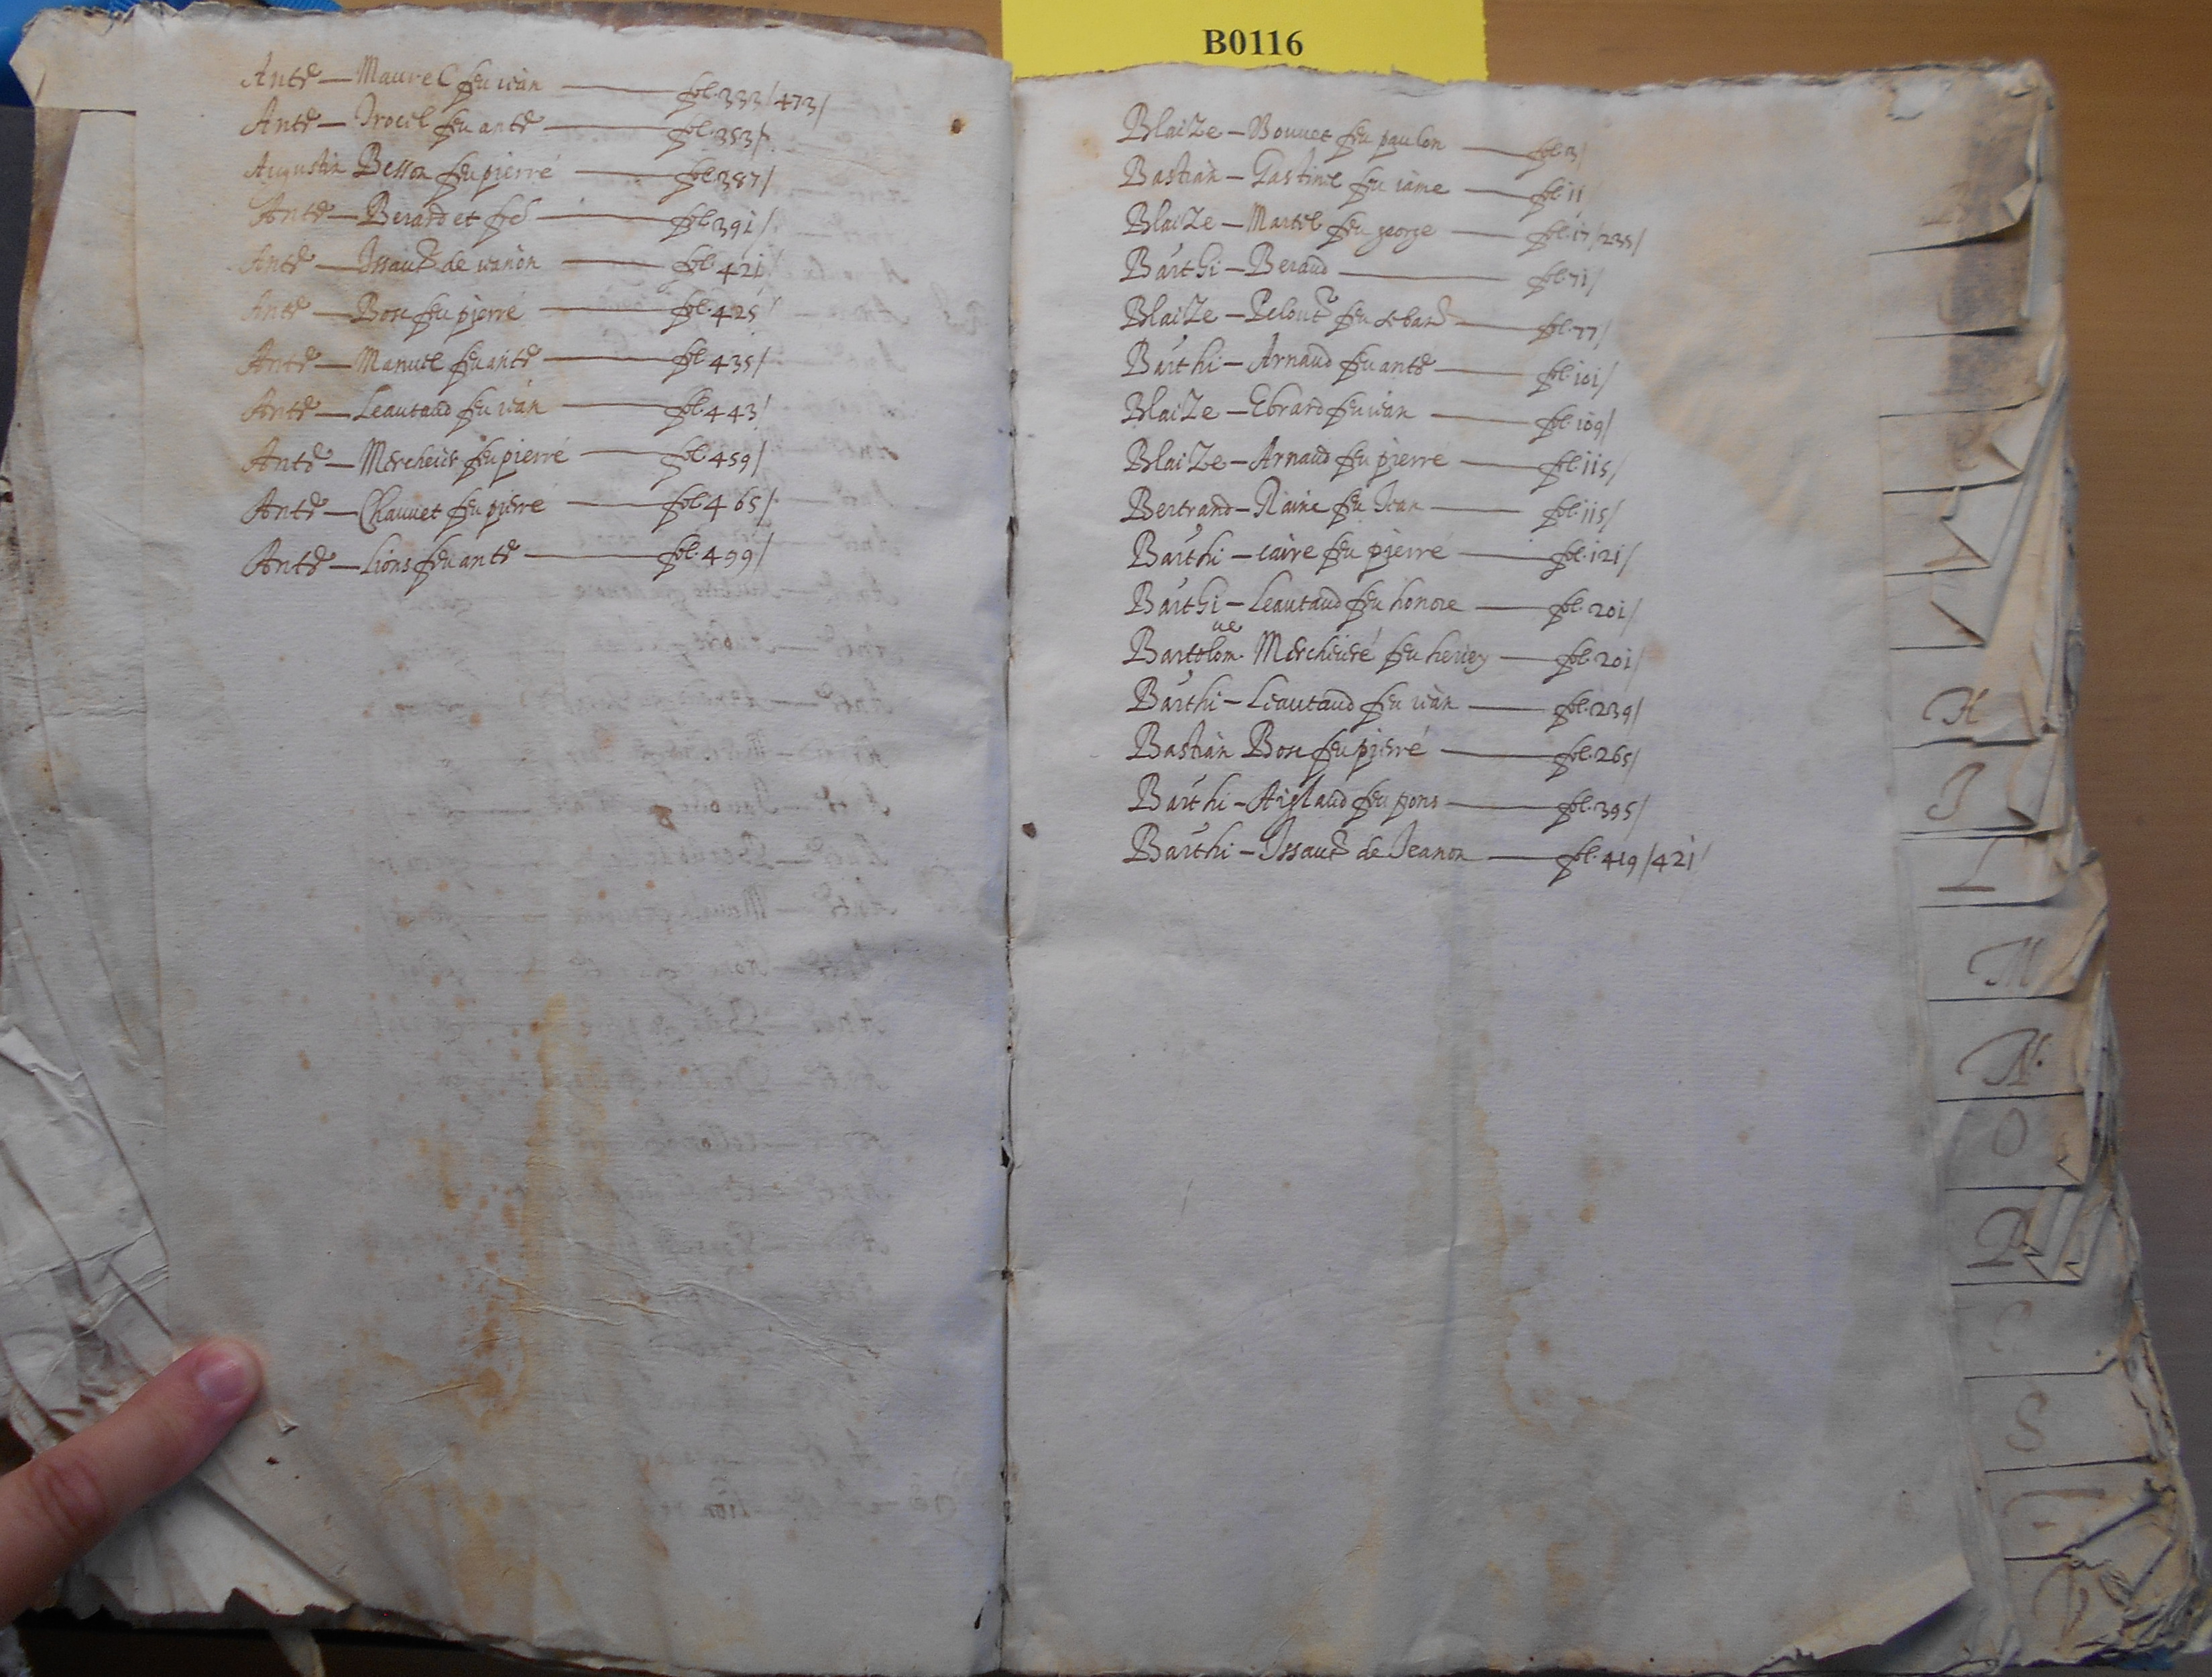 B0116
Antē — Maurel feu iuan — fol. 333/473/
Antē — Trocel feu antē — fol. 353/
Augustin Besson feu pierre — fol. 387/
Antē — Berard et fr — fol. 391/
Antē — Issautē de ianon — fol. 421/
Antē — Bosc feu pierre — fol. 425/
Antē — Manuel feu antē — fol. 435/
Antē — Leautaud feu iuan — fol. 443/
Antē — feu pierre — fol. 459/
Antē — Chauuet feu pierre — fol. 465/
Antē — Lions feu antē — fol. 499/
Blaize — Bouuet feu paulon — fol. 3/
Bastian — Gastinel feu iame — fol. 11
Blaize — Martel feu george — fol. 17/235/
Barthi — Beraud — fol. 71/
Blaize — feu — fol. 77/
Barthi — Arnaud feu antē — fol. 101/
Blaize — Ebrard feu iuan — fol. 109/
Blaize — Arnaud feu pierre — fol. 115/
Bertrand — feu Iean — fol. 115/
Barthi — caire feu pierre — fol. 121/
Barthi — Leautaud feu honore — fol. 201/
Bartolom. feu — fol. 201/
Barthi — Leautaud feu iuan — fol. 239/
Bastian Bosc feu pierre — fol. 265/
Barthi — Aiglaud feu pons — fol. 395/
Barthi — Issautē de Jeanon — fol. 419/421/
H
J
L
M
N.
O
P
S
T
V